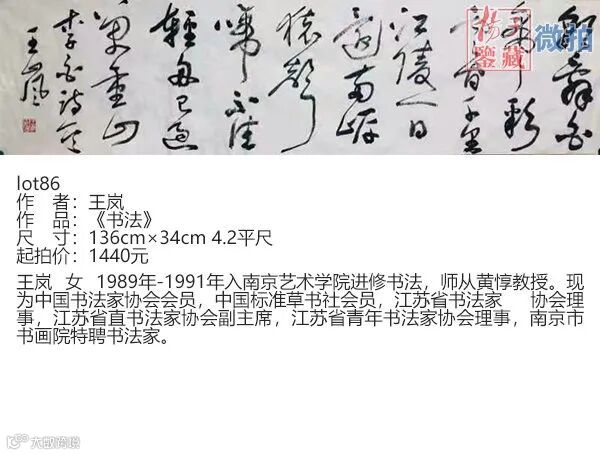 朝辞白
帝彩
雲间千里
江陵一日
還兩岸
猿聲
啼不住
輕舟已過
萬重山
李白詩
王嵐
鉴藏
微拍
lot86
作 者：王岚
作 品：《书法》
尺 寸：136cm×34cm 4.2平尺
起拍价：1440元
王岚 女 1989年-1991年入南京艺术学院进修书法，师从黄惇教授。现
为中国书法家协会会员，中国标准草书社会员，江苏省书法家 协会理
事，江苏省直书法家协会副主席，江苏省青年书法家协会理事，南京市
书画院特聘书法家。
大数跨境